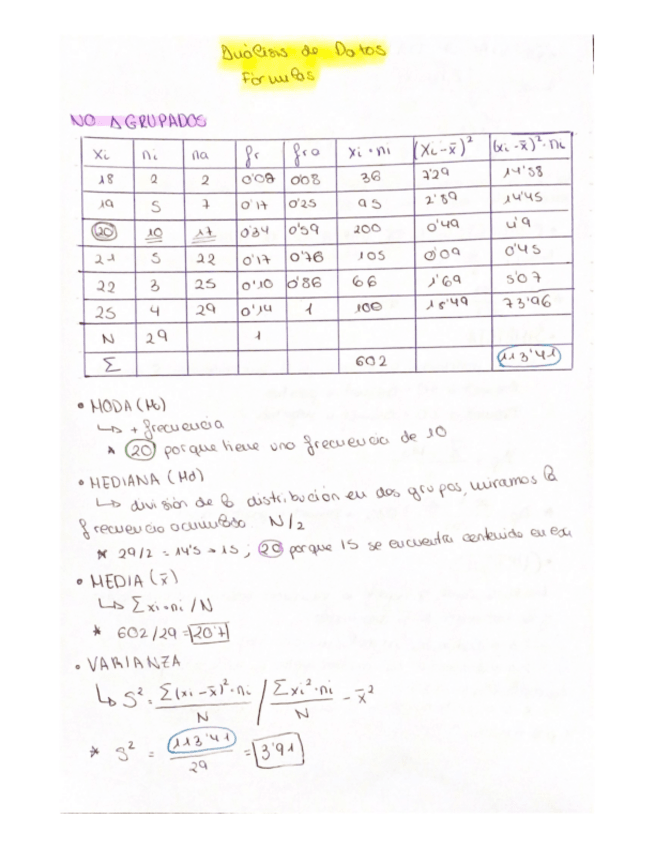 Análisis de Datos
Fórmulas
NO AGRUPADOS
xi ni na fr fra xi · ni (xi - x̄)² (xi - x̄)² · ni
18 2 2 0'08 0'08 36 7'29 14'58
19 5 7 0'17 0'25 95 2'89 14'45
20 10 17 0'34 0'59 200 0'49 4'9
21 5 22 0'17 0'76 105 0'09 0'45
22 3 25 0'10 0'86 66 1'69 5'07
25 4 29 0'14 1 100 18'49 73'96
N 29 1
Σ 602 113'41
• MODA (Mo)
↳ + frecuencia
* 20 porque tiene una frecuencia de 10
• MEDIANA (Md)
↳ división de la distribución en dos grupos, miramos la
frecuencia acumulada. N/2
* 29/2 = 14'5 → 15 ; 20 porque 15 se encuentra contenido en
• MEDIA (x̄)
↳ Σxi · ni / N
* 602/29 = 20'7
• VARIANZA
↳ S² = Σ(xi - x̄)² · ni / N / Σxi² · ni / N - x̄²
* S² = 113'41 / 29 = 3'91